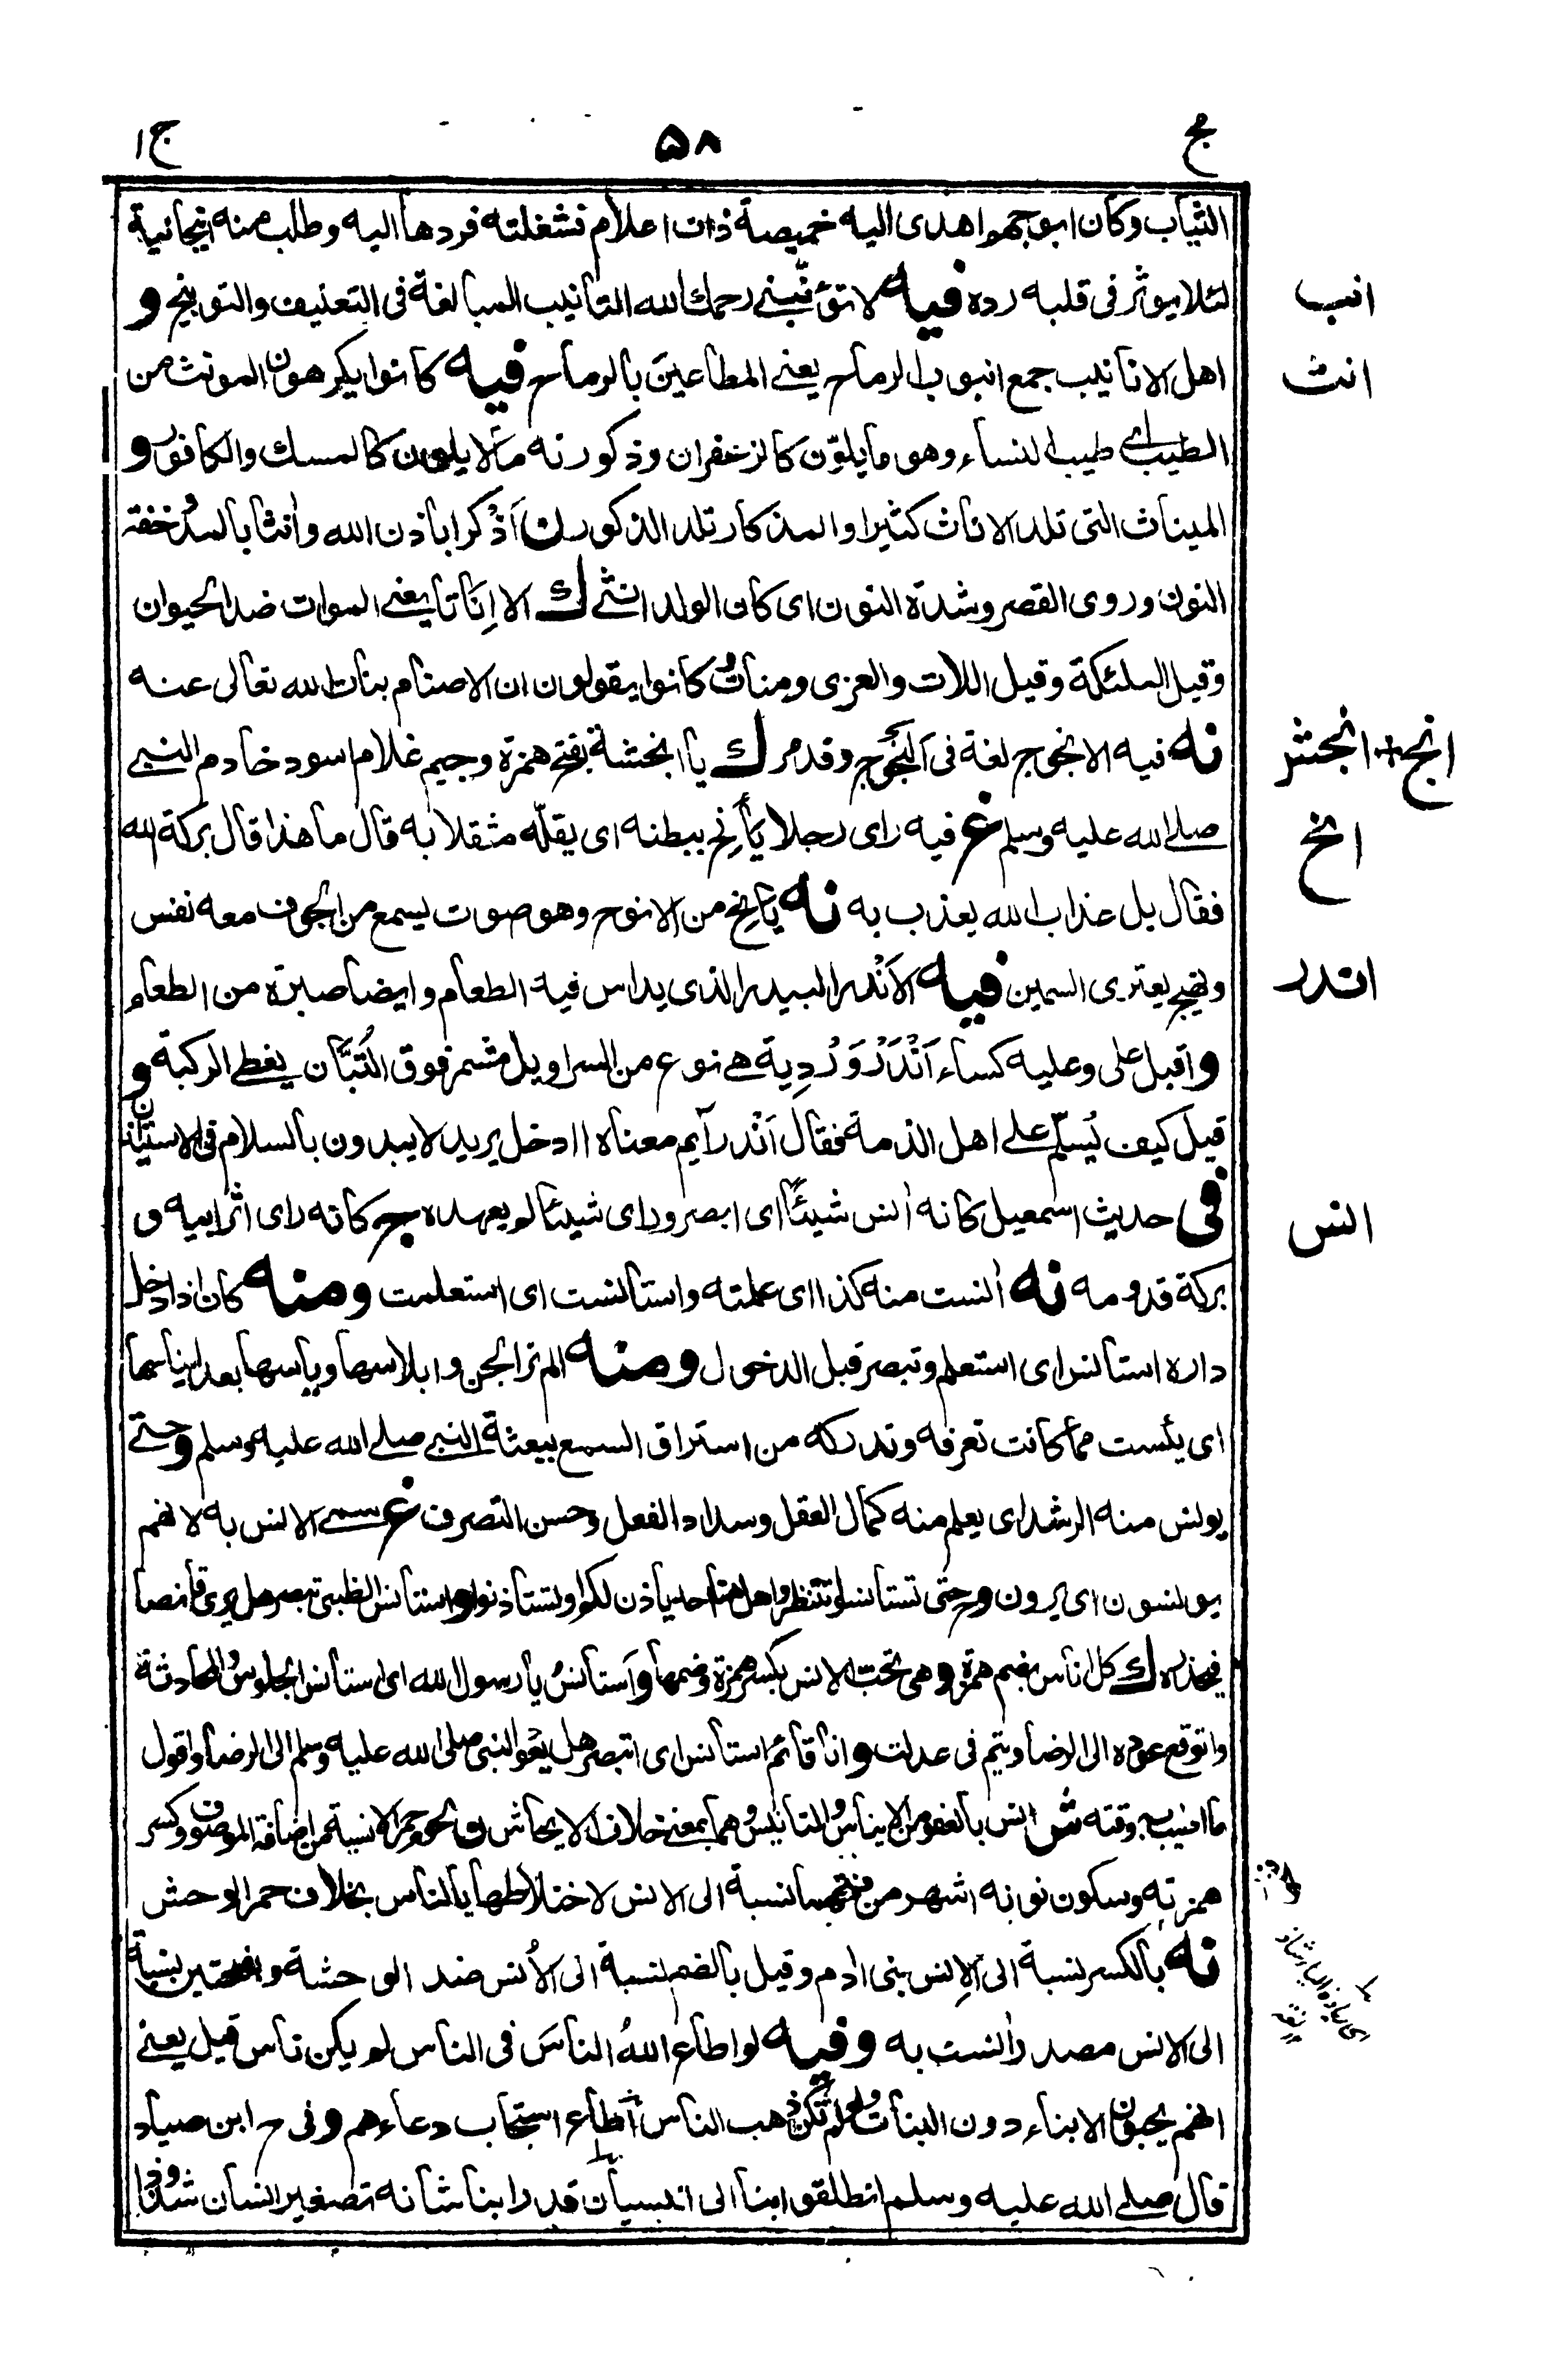 مج ۵۸ ج۱
الثياب وكان ابو جهم اهدى اليه خميصة ذات اعلام فشغلته فردها اليه وطلب منه انبجانية
لئلا يوثر فى قلبه رده فيه لا تؤنّبنى رحمك الله التانيب المبالغة فى التعنيف والتوبيخ و
انب
اهل الانابيب جمع انبوب الرماح يعنى المطاعين بالرماح فيه كانوا يكرهون المونث من
انث
الطيب اى طيب النساء وهو ما يلوّن كالزعفران وذكورته ما لا يلون كالمسك والكافور و
الميناث التى تلد الاناث كثيرا والمذكار تلد الذكور ن اَذْكرا باذن الله وانثا بالمد وخفة
النون وروى القصر وشدة النون اى كان الولد انثى ك الا اِنَاثا يعنى الموات ضد الحيوان
وقيل الملئكة وقيل اللات والعزى ومناتُ كانوا يقولون ان الاصنام بنات الله تعالى عنه
نه فيه الانجوج لغة فى اَلَنْجُوج وقد مر ك يا انجشة بفتح همزة وجيم غلام اسود خادم النبى
انج + انجش
صلى الله عليه وسلم غ فيه راى رجلا يَأْنِح ببطنه اى يقلّه مثقلا به قال ما هذا قال بركة الله
انح
فقال بل عذاب الله يعذب به نه يانح من الانوح وهو صوت يسمع من الجوف معه نفس
ونهيج يعترى السمين فيه الاَنْدر البيدر الذى يداس فيه الطعام وايضا صبرة من الطعام
اندر
و اقبل على وعليه كساء اَنْدَرْوَرْدِية هى نوع من السراويل مشمر فوق التُبَّان يغطى الركبة و
قيل كيف يُسلّم على اهل الذمة فقال اَنْدرآيم معناه اادخل يريد لا يبدون بالسلام فى الاستيذان
فى حديث اسمعيل كانه اٰنس شيئًا اى ابصر وراى شيئا لم يعهده ج كانه راى اثر ابيه و
انس
بركة قدومه نه اٰنست منه كذا اى علمته واستانست اى استعلمت ومنه كان اذا دخل
داره استانس اى استعلم وتبصر قبل الدخول ومنه الم تر الجن وابلاسها وياسها بعد ايناسها
اى يئست مما كانت تعرفه وتدركه من استراق السمع ببعثة النبى صلى الله عليه وسلم وحتى
يونس منه الرشد اى يعلم منه كمال العقل وسداد الفعل وحسن التصرف غ سمى الانس به لانهم
يونسون اى يرون وحتى تستانسوا تنظروا هل هنا احد ياذن لكم او تستاذنوا واستانس الظبى تبصر هل يرى قانصا
فيحذره ك كل اناس بضم همزة وهى تحت الانس بكسر همزة وضمها واَستانسُ يا رسول الله اى استانس الجلوس والمحادثة
واتوقع عوده الى الرضا ويتم فى عدلت وانا قائم استانس اى اتبصر هل يعود النبى صلى الله عليه وسلم الى الرضا واقول
ما اطيب به وقته ش انس بالعفو من الايناس والتانيس وهما بمعنى خلاف الايحاش ق لحوم حمر الانسية من اضافة الموصوف وكسر
همزته وسكون نونه اشهر من فتحهما نسبة الى الانس لاختلاطها بالناس بخلاف حمر الوحش
نه بالكسر نسبة الى الاِنس بنى ادم وقيل بالضم نسبة الى الاُنس ضد الوحشة وبفتحتين نسبة
الى الانس مصدر انست به وفيه لو اطاع اللهُ الناسَ فى الناس لم يكن ناس قيل يعنى
انهم يحبون الابناء دون البنات ولو لم تكن ذهب الناس اطاع استجاب دعاءهم وفى ح ابن صياد
قال صلى الله عليه وسلم انطلقوا بنا الى انيسيان قد رابنا شانه تصغير انسان شذوذا